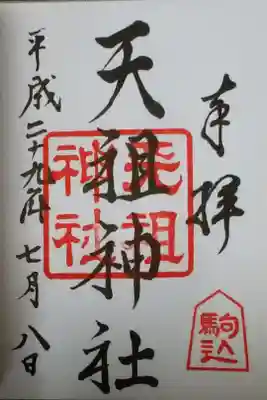 奉拝
駒込
天祖神社
天祖神社
平成二十九年七月八日